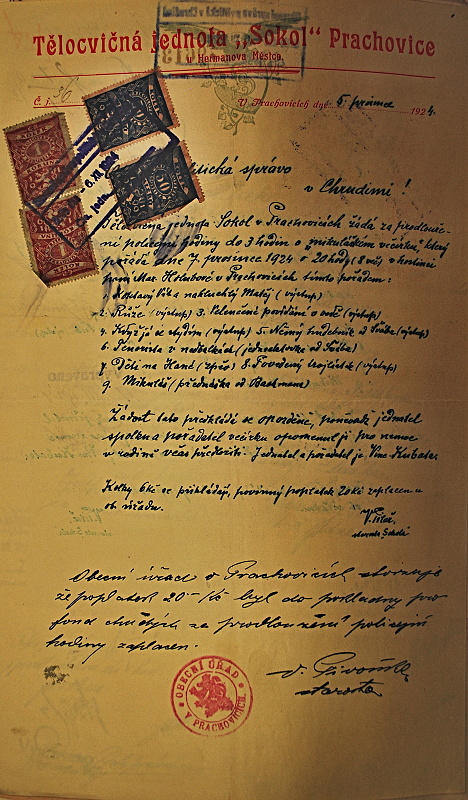 Tělocvičná jednota „Sokol“ Prachovice
u Heřmanova Městce.
Č. j. 36 V Prachovicích dne: 5. prosince 1924.
politická správo
v Chrudimi!
Tělocvičná jednota Sokol v Prachovicích žádá za prodlouže-
ní policejní hodiny do 3 hodin o „mikulášském večírku“, který
pořádá dne 7. prosince 1924 o 20 hod. (8 več.) v hostinci
paní Mar. Holubové v Prachovicích tímto pořadem:
a nahluchlý Matěj (výstup)
2. Růže (výstup) 3. (výstup)
4. Když já se stydím (výstup) 5. Němý hudebník od Švába (výstup)
6. Tenorista v nedbalkách (jednoaktovka od Švába)
7. Děti na Hané (zpěv) 8. (výstup)
9. Mikuláš (přednáška od Bachmana)
Žádost tato předkládá se opožděně, poněvadž jednatel
spolku a pořadatel večírku opomenul ji pro nemoc
v rodině včas předložiti. Jednatel a pořadatel je Vinc. Kubata.
Kolky 6 Kč se přikládají, povinný poplatek 20 Kč zaplacen u
ob. úřadu.
starosta Sokola
Obecní úřad v Prachovicích stvrzuje
že poplatek 20 – Kč byl do pokladny pro
fond chudých za prodloužení policejní
hodiny zaplacen.
starosta
OBECNÍ ÚŘAD
V PRACHOVICÍCH